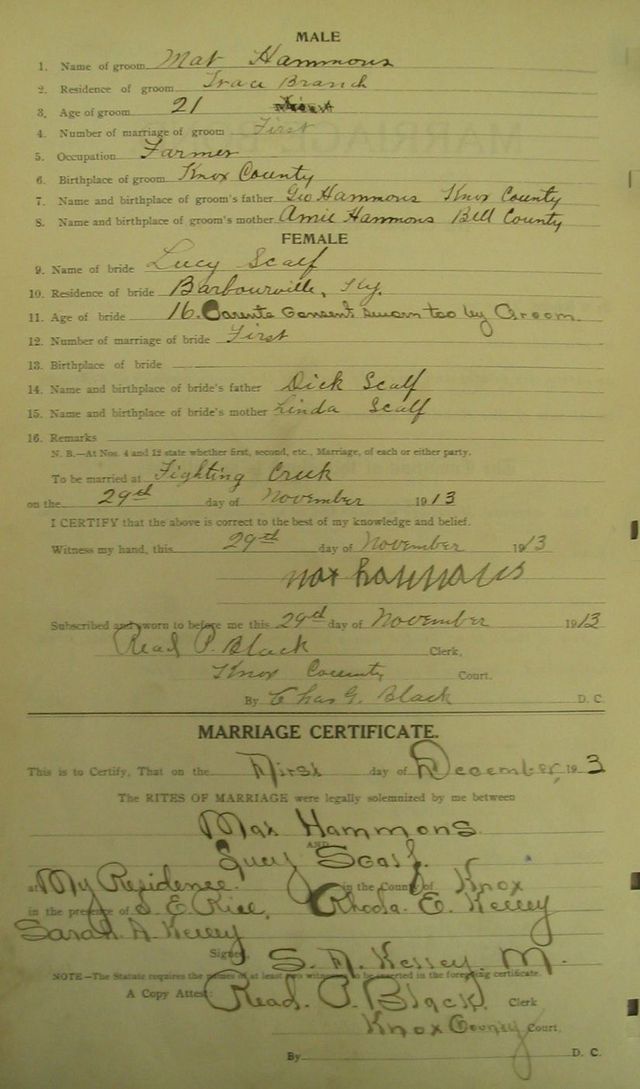 MALE
1. Name of groom Mat Hammons
2. Residence of groom Trace Branch
3. Age of groom 21
4. Number of marriage of groom First
5. Occupation Farmer
6. Birthplace of groom Knox County
7. Name and birthplace of groom's father Geo Hammons Knox County
8. Name and birthplace of groom's mother Amie Hammons Bell County
FEMALE
9. Name of bride Lucy Scalf
10. Residence of bride Barbourville, Ky.
11. Age of bride 16. Parents Consent sworn too by Groom.
12. Number of marriage of bride First
13. Birthplace of bride
14. Name and birthplace of bride's father Dick Scalf
15. Name and birthplace of bride's mother Linda Scalf
16. Remarks
N. B.—At Nos. 4 and 12 state whether first, second, etc., Marriage, of each or either party.
To be married at Fighting Creek
on the 29th day of November 1913
I CERTIFY that the above is correct to the best of my knowledge and belief.
Witness my hand, this 29th day of November 1913
Subscribed and sworn to before me this 29th day of November 1913
Read P. Black Clerk,
Knox County Court.
By Chas G. Black D. C.
MARRIAGE CERTIFICATE.
This is to Certify, That on the First day of December, 1913
The RITES OF MARRIAGE were legally solemnized by me between
Mat Hammons
AND
Lucy Scalf.
at My Residence. in the County of Knox
in the presence of S. E. Rice, Rhoda. E. Kelley
Sarah. A. Kelley
Signed, S. A. Kelley M.
NOTE—The Statute requires the names of at least two witnesses to be inserted in the foregoing certificate.
A Copy Attest: Read. P. Black. Clerk
Knox County Court,
By D. C.